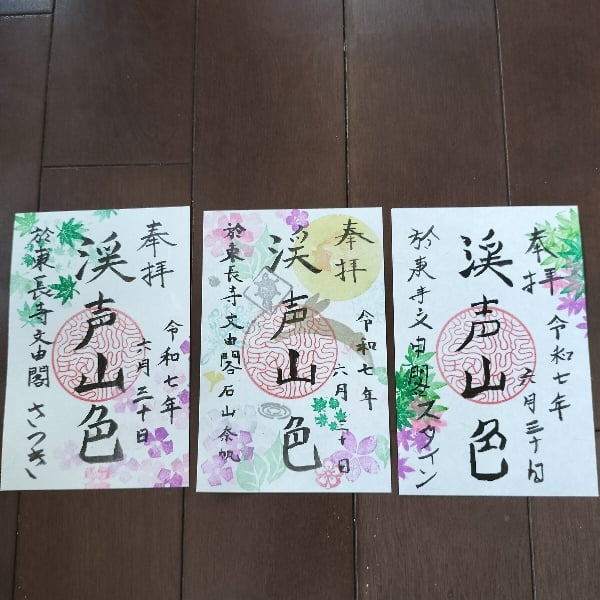 奉拝
渓声山色
令和七年
六月三十日
於東長寺文由閣 さつき
奉拝
渓声山色
令和七年
六月三十日
於東長寺文由閣 石山奈帆
奉拝
渓声山色
令和七年
六月三十日
於東長寺文由閣 スタイン